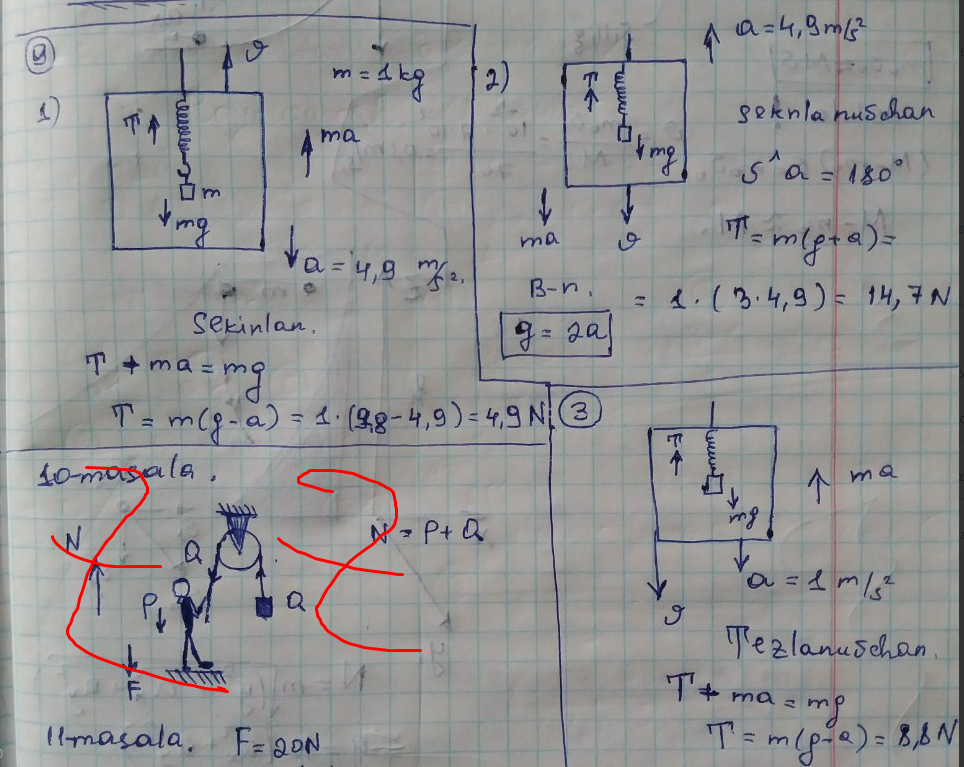 9
1)
ϑ
m = 1 kg
T
ma
m
mg
a = 4,9 m/s².
Sekinlan.
T + ma = mg
T = m(g-a) = 1·(9,8-4,9) = 4,9 N
2)
a = 4,9 m/s²
T
mg
ma
ϑ
S^a = 180°
T = m(g+a) =
B-n.
= 1·(3·4,9) = 14,7 N
g = 2a
3
T
mg
ma
ϑ
a = 1 m/s²
Tezlanuśchan.
T + ma = mg
T = m(g-a) = 8,8 N
10-masala.
N
Q
N = P + Q
P
Q
F
11-masala. F = 20N